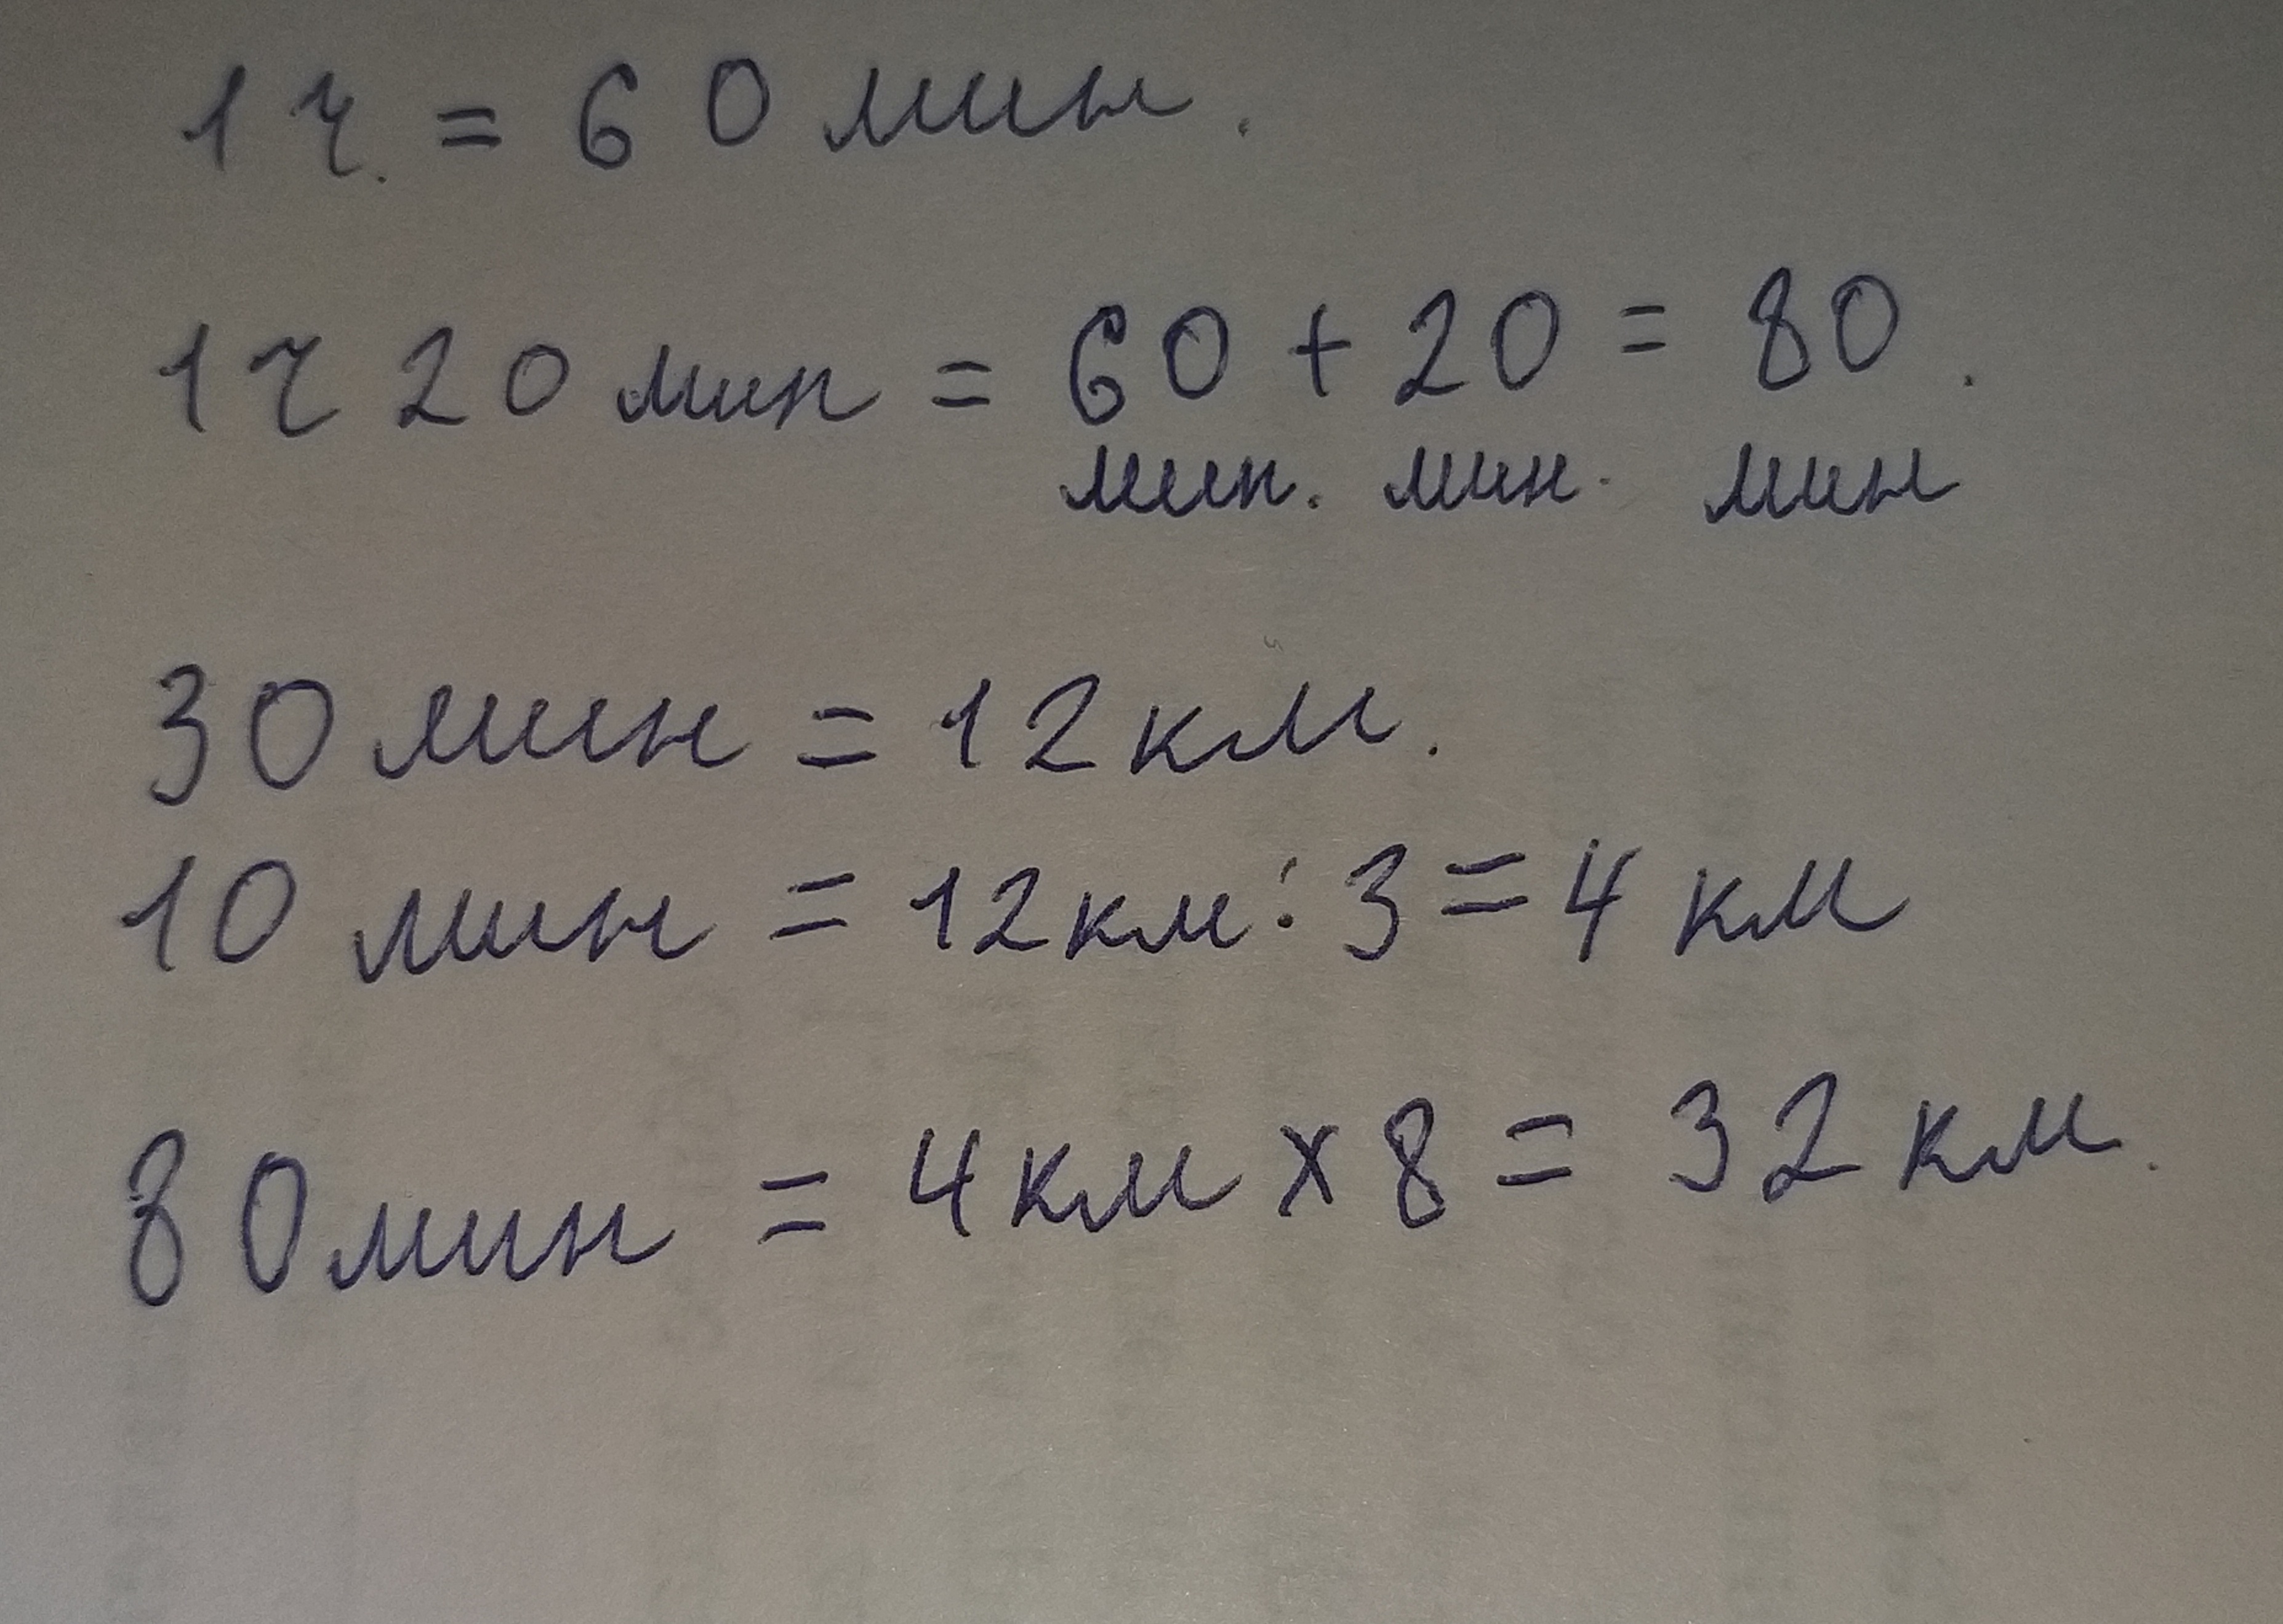 1 ч. = 60 мин.
1 ч 20 мин = 60 + 20 = 80.
мин. мин. мин
30 мин = 12 км.
10 мин = 12 км : 3 = 4 км
80 мин = 4 км х 8 = 32 км.